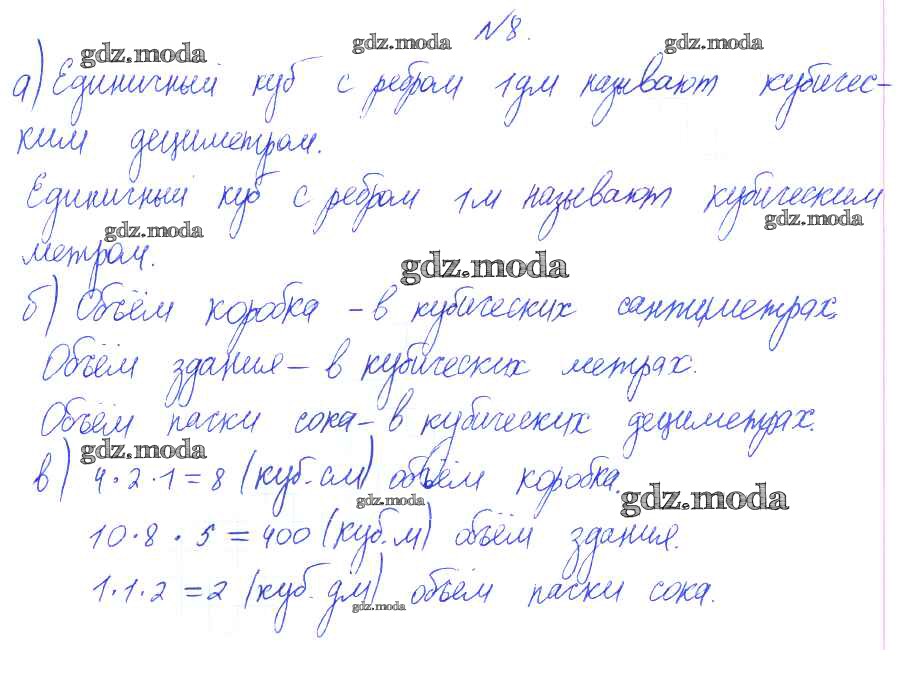 №8.
gdz.moda gdz.moda gdz.moda
а) Единичный куб с ребром 1дм называют кубичес-
ким дециметром.
Единичный куб с ребром 1м называют кубическим
gdz.moda gdz.moda
метром.
gdz.moda
б) Объём коробка - в кубических сантиметрах.
Объём здания - в кубических метрах.
Объём пачки сока - в кубических дециметрах.
gdz.moda
в) 4·2·1=8 (куб.см) объём коробка.
gdz.moda gdz.moda
10·8·5=400 (куб.м) объём здания.
1·1·2=2 (куб.дм) объём пачки сока.
gdz.moda